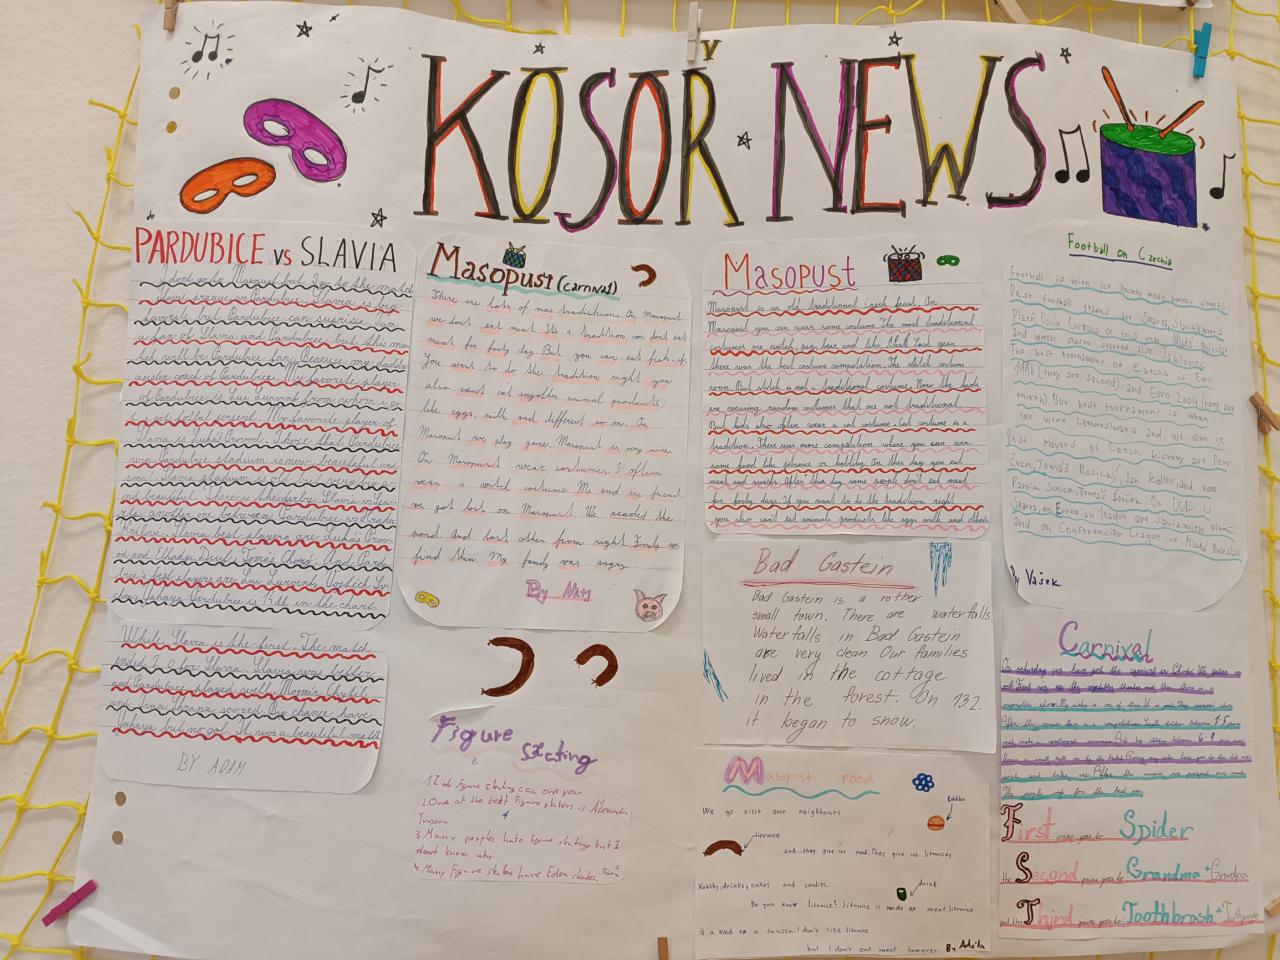 KOSOŘ NEWS
PARDUBICE vs SLAVIA
I dont go to Masopust but I go to the match
Slavi prague vs Pardubice. Slavia is big
favorite but Pardubice can suprise. I am
a fan of Slavia and Pardubice, but this ma
tch will be Pardubice fan. Beacuse my daddy
asisten coach of Pardubice. My favorite player
of Pardubice is Lui Lurvint from whom i
got fotbal jersent. My favorite player of
Slavia is Lukáš Provod. Those that Pardubice
own Pardubice stadium is new, beautiful and
small. Slavia stadium is old but very big
and beautiful. There is the derby Slavia vs Spa
rta another one between Pardubice vs Hradec
Králove. Slavia best slayers are Lukáš Provod
od and Elhadar Diouf, Tomáš Chorý. And Pardu
bice's best slayers are Lui Lurvint, Vojtěch
Yahaya. Pardubice is 14th in the chart.
While Slavia is the first. The match
ended 2:0 for Slavia. Slavia was better
and Pardubice played well. Mojmír Chytil
and Ivan Shranz scored. Big chance have
Yahaya but no goal. It was a beautiful match
BY ADAM
Masopust (carnival)
There are lots of mas traditions. On Masopust
we don't eat meat. It's a tradition not don't eat
meat for forty day. But you can eat fish. If
You want to do the tradition right you
also cant eat anyother animal products.
like eggs, milk and different so on. On
Masopust we play game. Masopust is very nice.
On Masopust wear costumes. I often
wear a witch costume. Me and me friend
we got lost on Masopust. We reached the
pond and lost other from right. Finaly we
find them. My family was angry.
By Naty
Figure skating
1. I do figure skating cca one year.
2. One of the best figure skaters is Alexandra
Trusova.
3. Many peoples hate figure skating but I
don't know why.
4. Many Figure skates have Eden skates. Sára
Masopust
Masopust is an old traditional Czech feast. On
Masopust you can wear some costume. The most traditional
costumes are witch, pig, bear and like that. Last year
there was the best costume competition. The stitch costume
won. But stitch is not a traditional costume. Now the kids
are wearing random costumes that are not traditional.
But kids also often wear a cat costume. Cat costume is a
tradition. There was more competition where you can win
some food like jitrnice or koblihy. On this day you eat
meat and sweets. After this day some people don't eat meat
for forty days. If you want to do the tradition right
you also can't eat animals products like eggs milk and others
Bad Gastein
Bad Gastein is a rother
small town. There are waterfalls.
Waterfalls in Bad Gastein
are very clean. Our families
lived in the cottage
in the forest. On 13.2.
it began to snow.
Masopust Food
We go visit our neighbours
Kobliha
jitrnice
and they give us food. They give us jitrnice,
koblihy, drinks, cakes and candies.
drink
Do you know jitrnice? Jitrnice is made of meat. Jitrnice
is a kind of a saussa. I don't like jitrnice
but I don't eat meat however. By Adéla
Football on Czechia
Football is with ice hockey most
Best football teams are Sparta, Slavia, Viktoria
Plzeň, Baník Ostrava or this year Mladá Boleslav
and when season started also Jablonec.
The best tournament of Czechia is Euro
1996 (they are second) and Euro 2004 (they are
third). But best tournament is when
were Czechoslovakia and we win it.
Best players of Czech history are Petr
Čech, Tomáš Rosický, Jan Koller and now
Patrik Schick, Tomáš Souček. On UCL is
Sparta, on European league are Slavia with Plzeň
and on Conferencion League is Mladá Boleslav.
By Vašek
Carnival
After the
The people vote for the best one.
First prize goes to: Spider
the Second prize goes to: Grandma + Grandpa
and the Third prize goes to: Toothbrash + Toothpaste